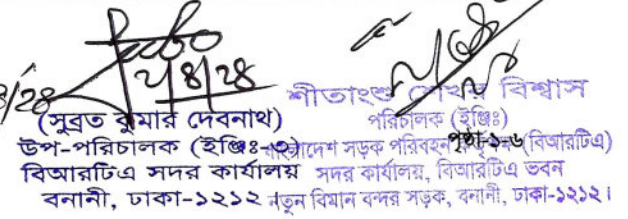 ২/৪/২৪
(সুব্রত কুমার দেবনাথ)
উপ-পরিচালক (ইঞ্জিঃ-৩)
বিআরটিএ সদর কার্যালয়
বনানী, ঢাকা-১২১২
শীতাংশু শেখর বিশ্বাস
পরিচালক (ইঞ্জিঃ)
বাংলাদেশ সড়ক পরিবহন (বিআরটিএ)
সদর কার্যালয়, বিআরটিএ ভবন
নতুন বিমান বন্দর সড়ক, বনানী, ঢাকা-১২১২।